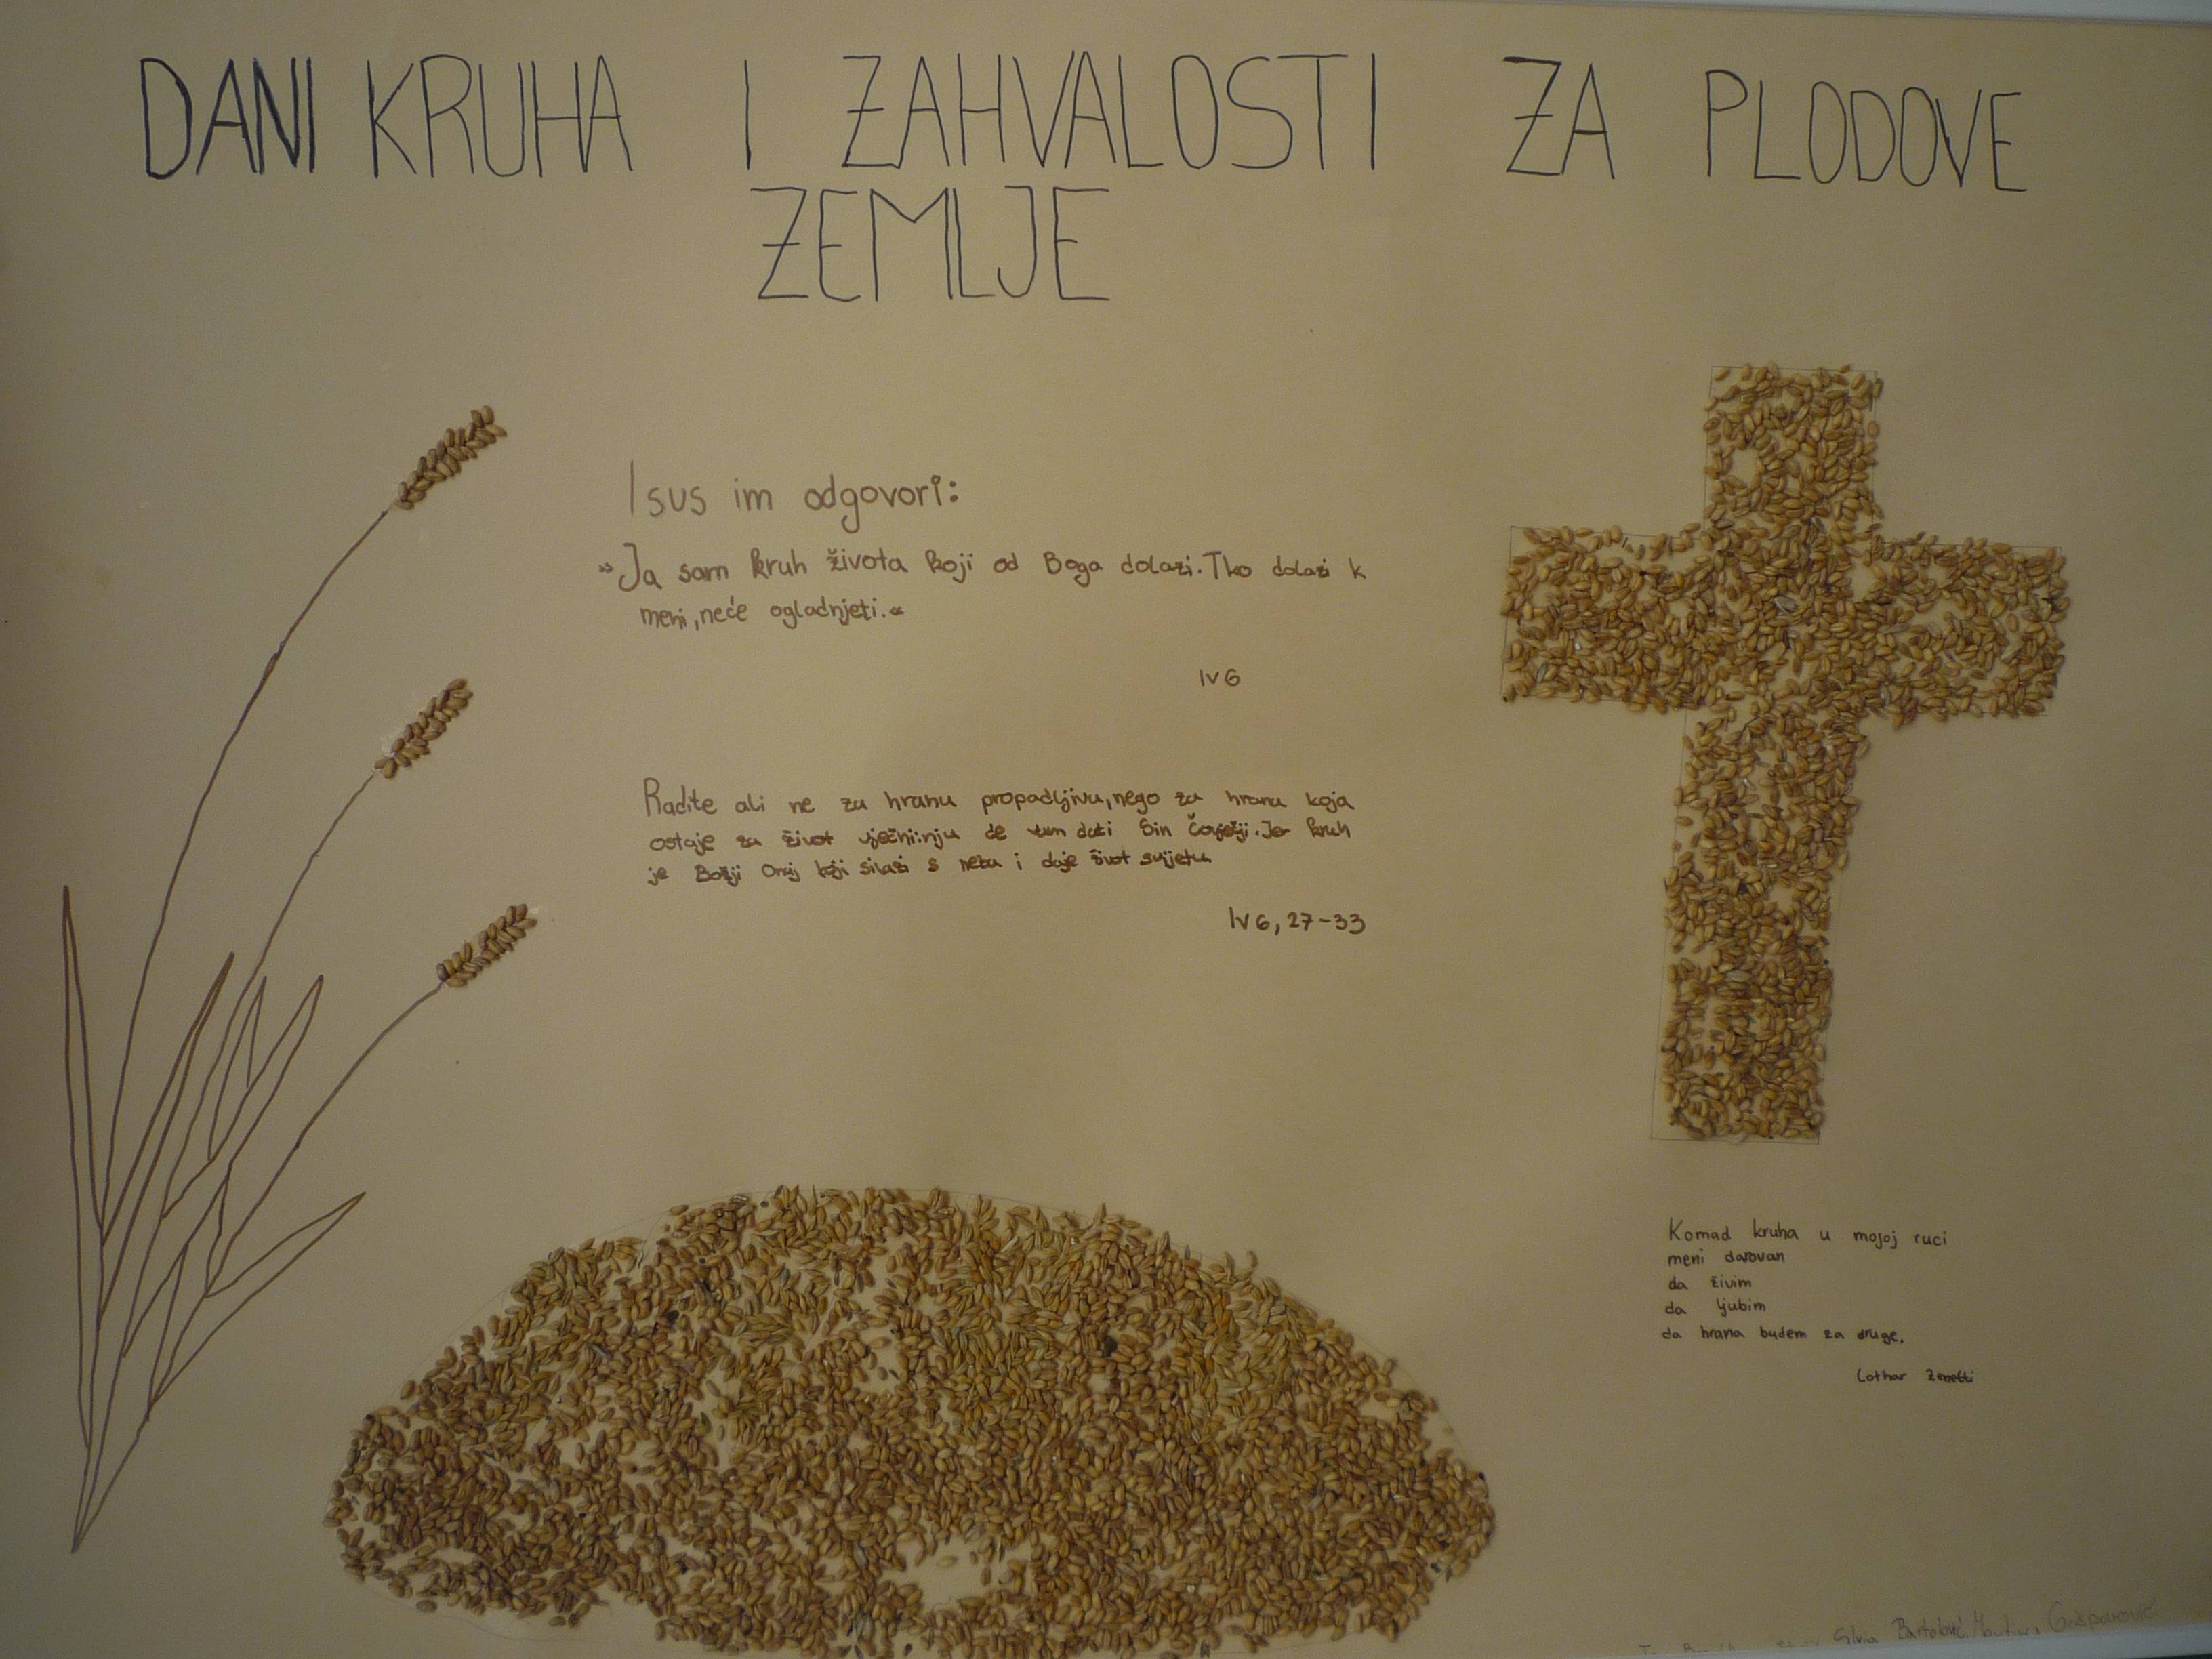 DANI KRUHA I ZAHVALOSTI ZA PLODOVE
ZEMLJE
Isus im odgovori:
»Ja sam kruh života koji od Boga dolazi. Tko dolazi k
meni, neće ogladnjeti.«
Iv 6
Radite ali ne za hranu propadljivu, nego za hranu koja
ostaje za život vječni: nju će vam dati Sin Čovječji. Jer kruh
je Božji Onaj koji silazi s neba i daje život svijetu
Iv 6, 27-33
Komad kruha u mojoj ruci
meni darovan
da živim
da ljubim
da hrana budem za druge.
Lothar Zenetti
Silvia Bartolović, Martina Gašparović